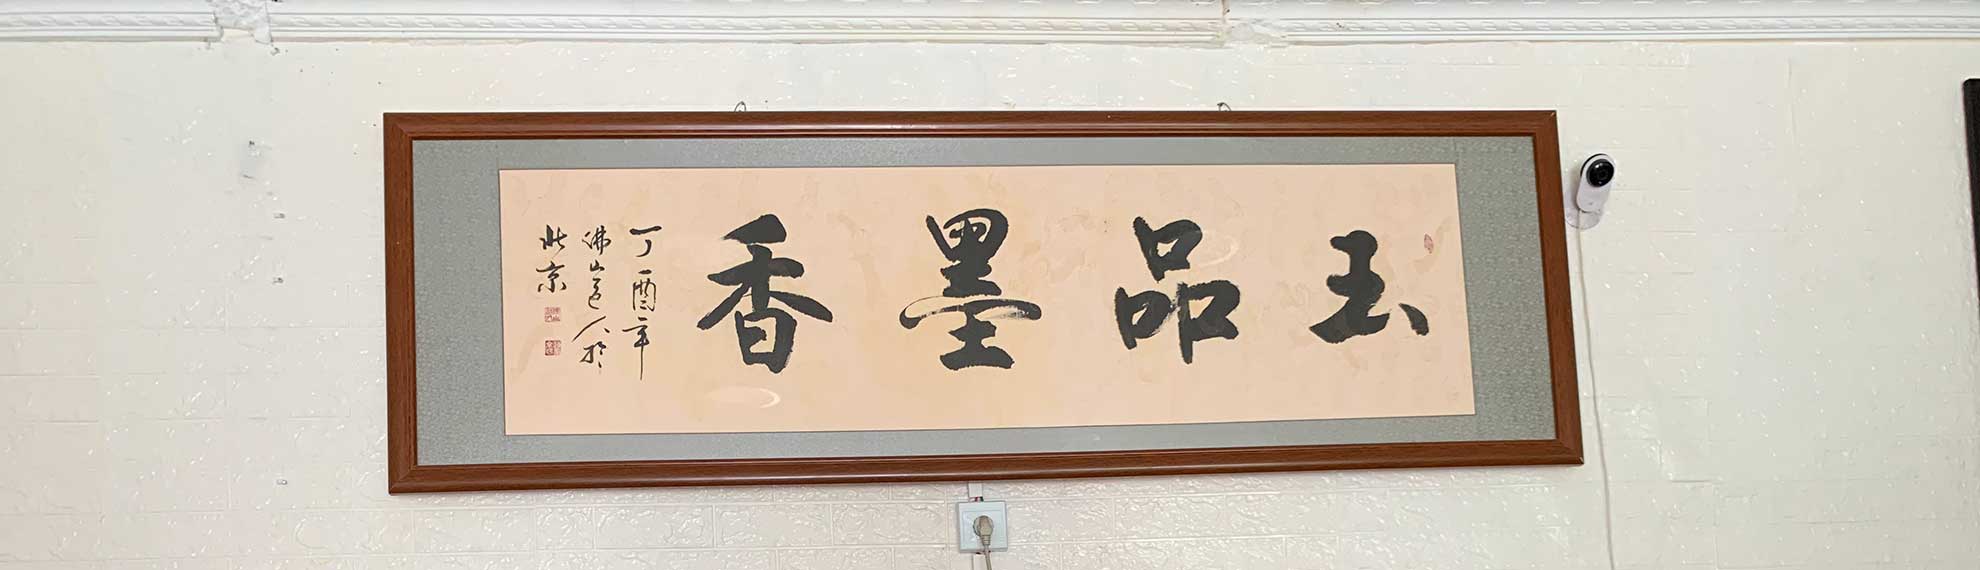 玉品墨香
丁酉年
佛山道人於
北京